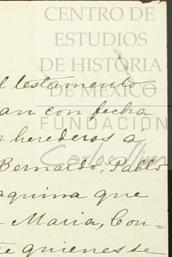 CENTRO DE
ESTUDIOS
DE HISTORIA
DE MÉXICO
l testamento
an con fecha
FUNDACIÓN
herederos a
Bernardo, Pablo
aquina que
Maria, Con-
e quienes se